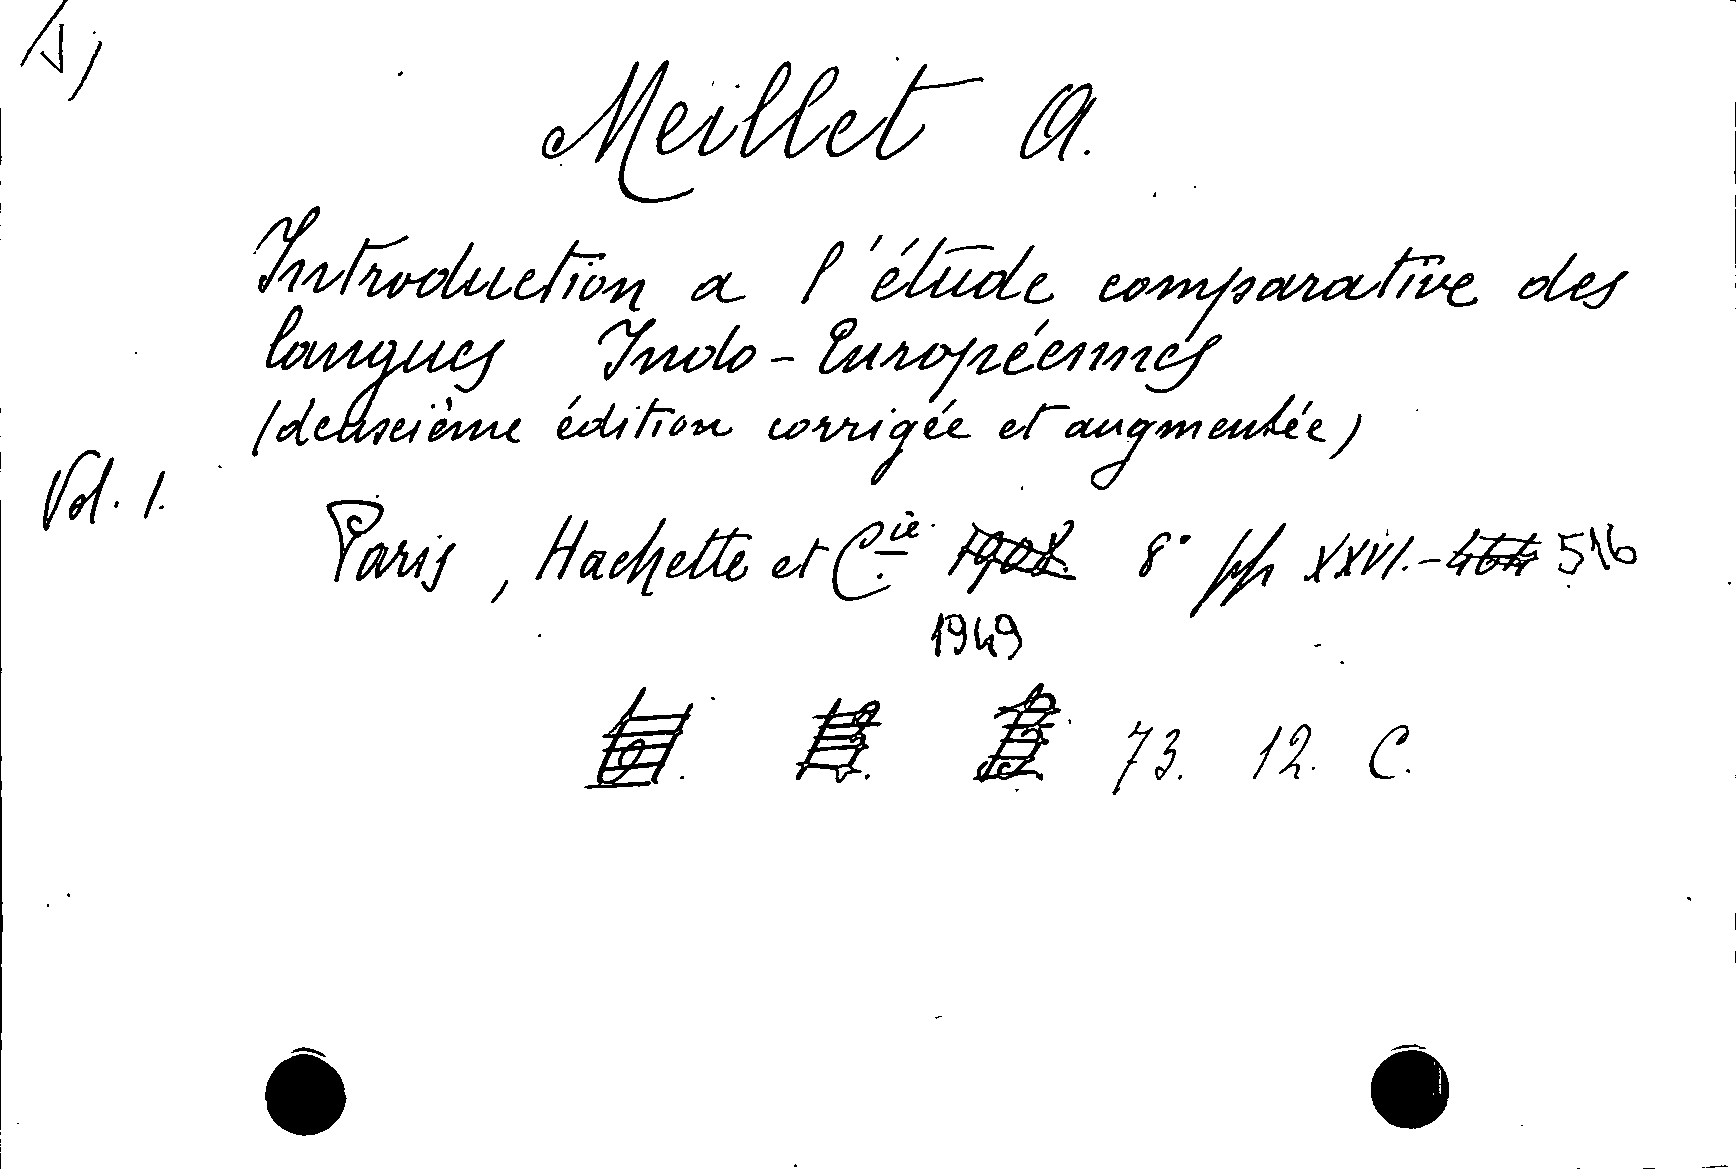 Meillet A.
Introduction a l'étude comparative des
langues Indo-Européennes
(deuxième édition corrigée et augmentée)
Vol. 1.
Paris, Hachette et C.ie 1908. 8° pp XXVI.-464 516
1949
73. 12. C.